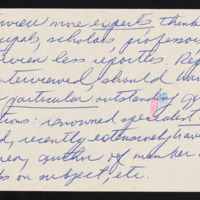 view more experts, think
scholars, professor
view less reporters. Re
interviewed, should
particular outstanding
tions: renowned specialist
d, recently extensively
author of number
on subject, etc.